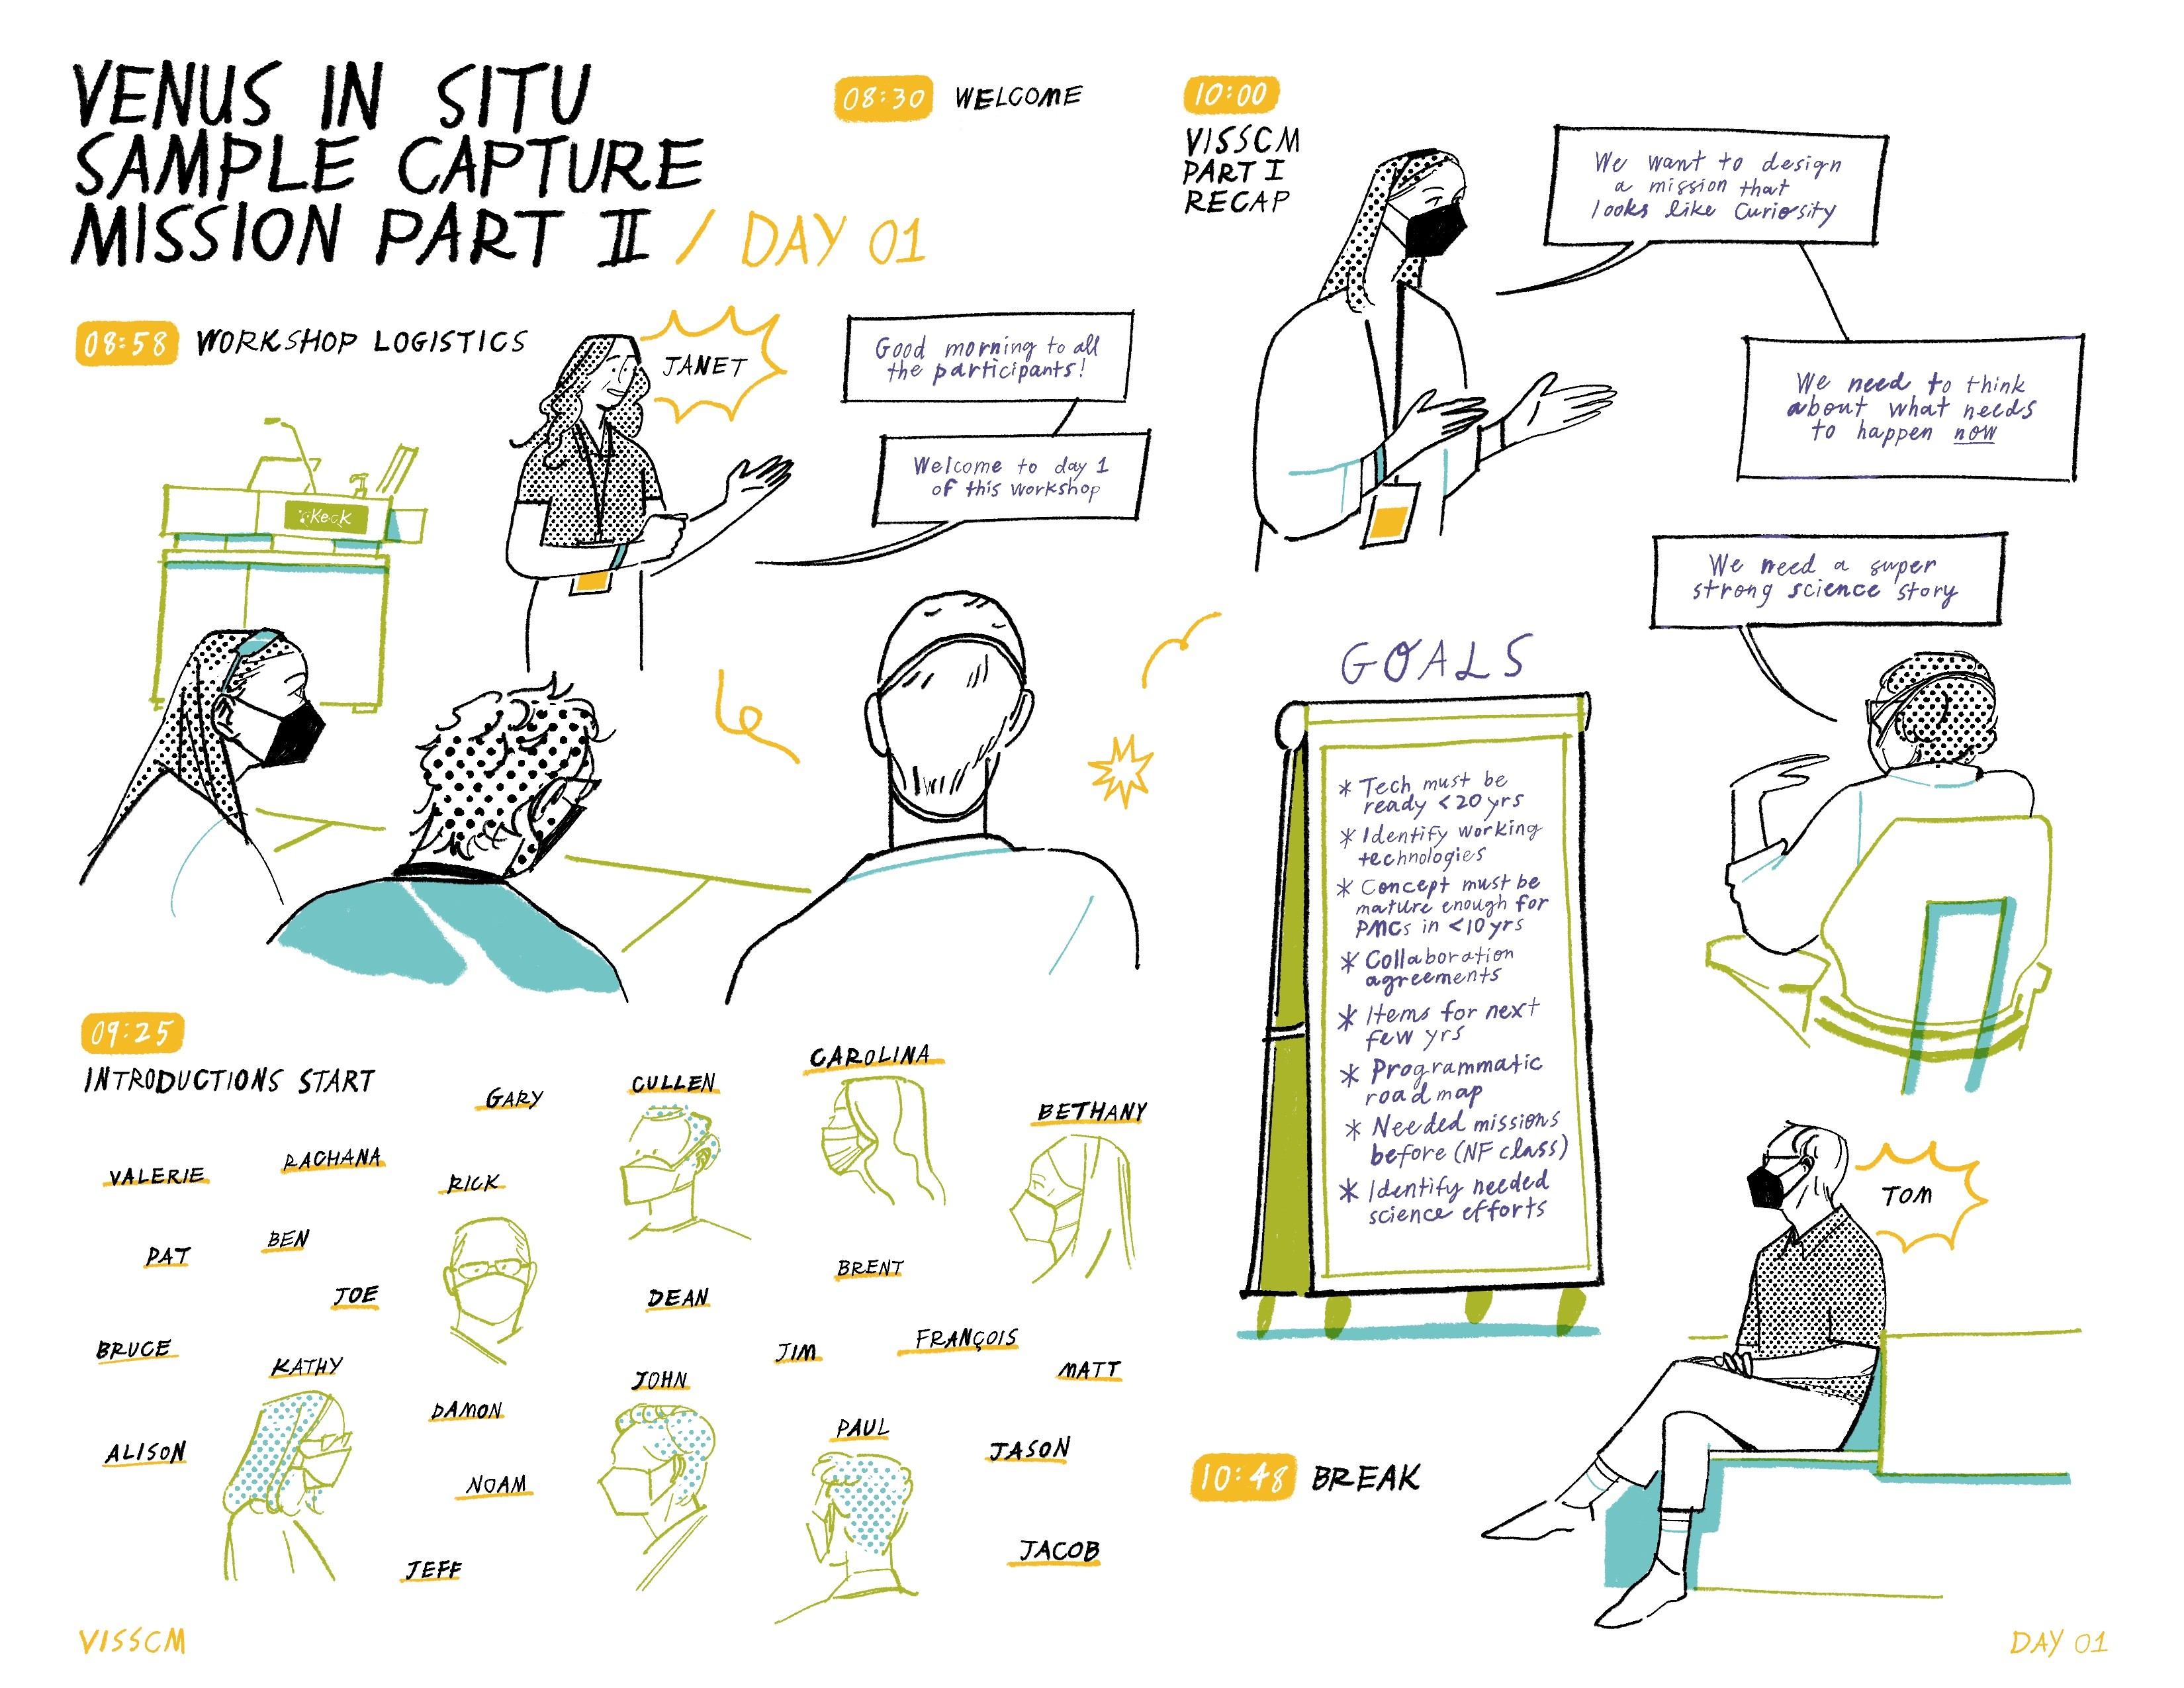 VENUS IN SITU
SAMPLE CAPTURE
MISSION PART II / DAY 01
08:30 WELCOME
08:58 WORKSHOP LOGISTICS
JANET
Good morning to all
the participants!
Welcome to day 1
of this workshop
Keck
09:25
INTRODUCTIONS START
GARY
CULLEN
CAROLINA
BETHANY
VALERIE
RACHANA
RICK
PAT
BEN
JOE
DEAN
BRENT
BRUCE
KATHY
JIM
FRANÇOIS
MATT
DAMON
JOHN
PAUL
ALISON
NOAM
JASON
JEFF
JACOB
VISSCM
10:00
VISSCM
PART I
RECAP
We want to design
a mission that
looks like Curiosity
We need to think
about what needs
to happen now
We need a super
strong science story
GOALS
* Tech must be
ready <20 yrs
* Identify working
technologies
* Concept must be
mature enough for
PMCs in <10 yrs
* Collaboration
agreements
* Items for next
few yrs
* Programmatic
road map
* Needed missions
before (NF class)
* Identify needed
science efforts
TOM
10:48 BREAK
DAY 01